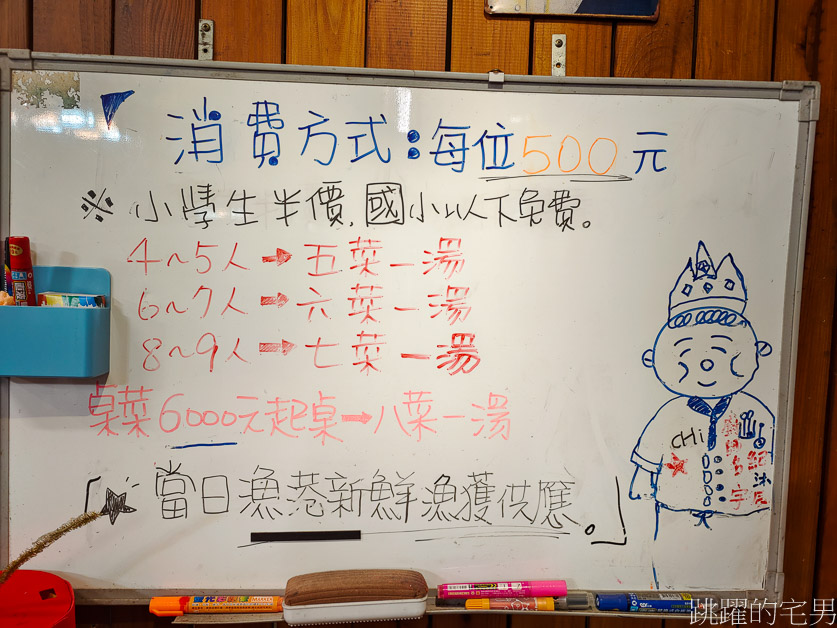 消費方式：每位500元
※小學生半價，國小以下免費。
4~5人➡五菜一湯
6~7人➡六菜一湯
8~9人➡七菜一湯
桌菜6000元起桌➡八菜一湯
「★當日漁港新鮮漁獲供應。」
CHi
跳躍的宅男